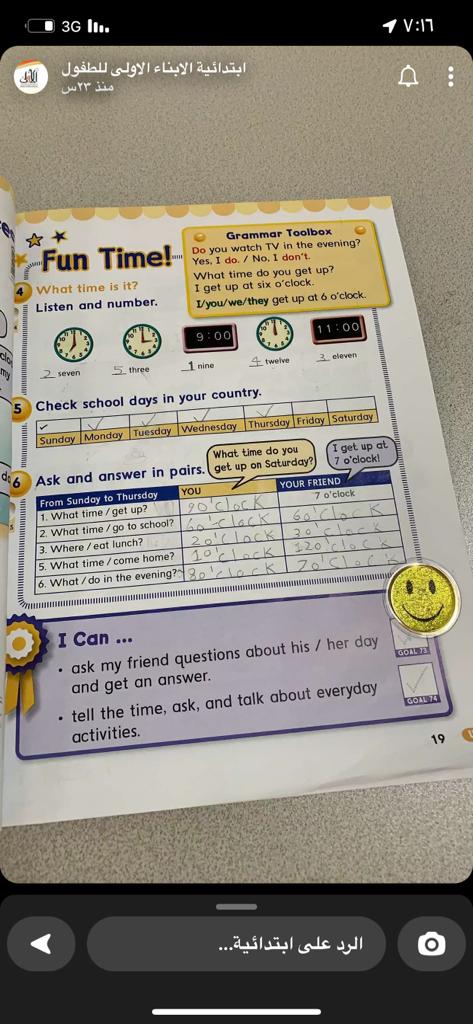 3G
٧:١٦
ابتدائية الابناء الاولى للطفول
منذ ٢٣س
Fun Time!
Grammar Toolbox
Do you watch TV in the evening?
Yes, I do. / No, I don't.
What time do you get up?
I get up at six o'clock.
I/you/we/they get up at 6 o'clock.
4 What time is it?
Listen and number.
9:00
11:00
2 seven
5 three
1 nine
4 twelve
3 eleven
5 Check school days in your country.
Sunday Monday Tuesday Wednesday Thursday Friday Saturday
6 Ask and answer in pairs.
What time do you
get up on Saturday?
I get up at
7 o'clock!
From Sunday to Thursday YOU YOUR FRIEND
1. What time / get up? 9o'clock 7 o'clock
2. What time / go to school? 6o'clock 6o'clock
3. Where / eat lunch? 2o'clock 3o'clock
5. What time / come home? 1o'clock 12o'clock
6. What / do in the evening? 8o'clock 7o'clock
I Can ...
• ask my friend questions about his / her day
and get an answer.
GOAL 73
• tell the time, ask, and talk about everyday
activities.
GOAL 74
19
الرد على ابتدائية...